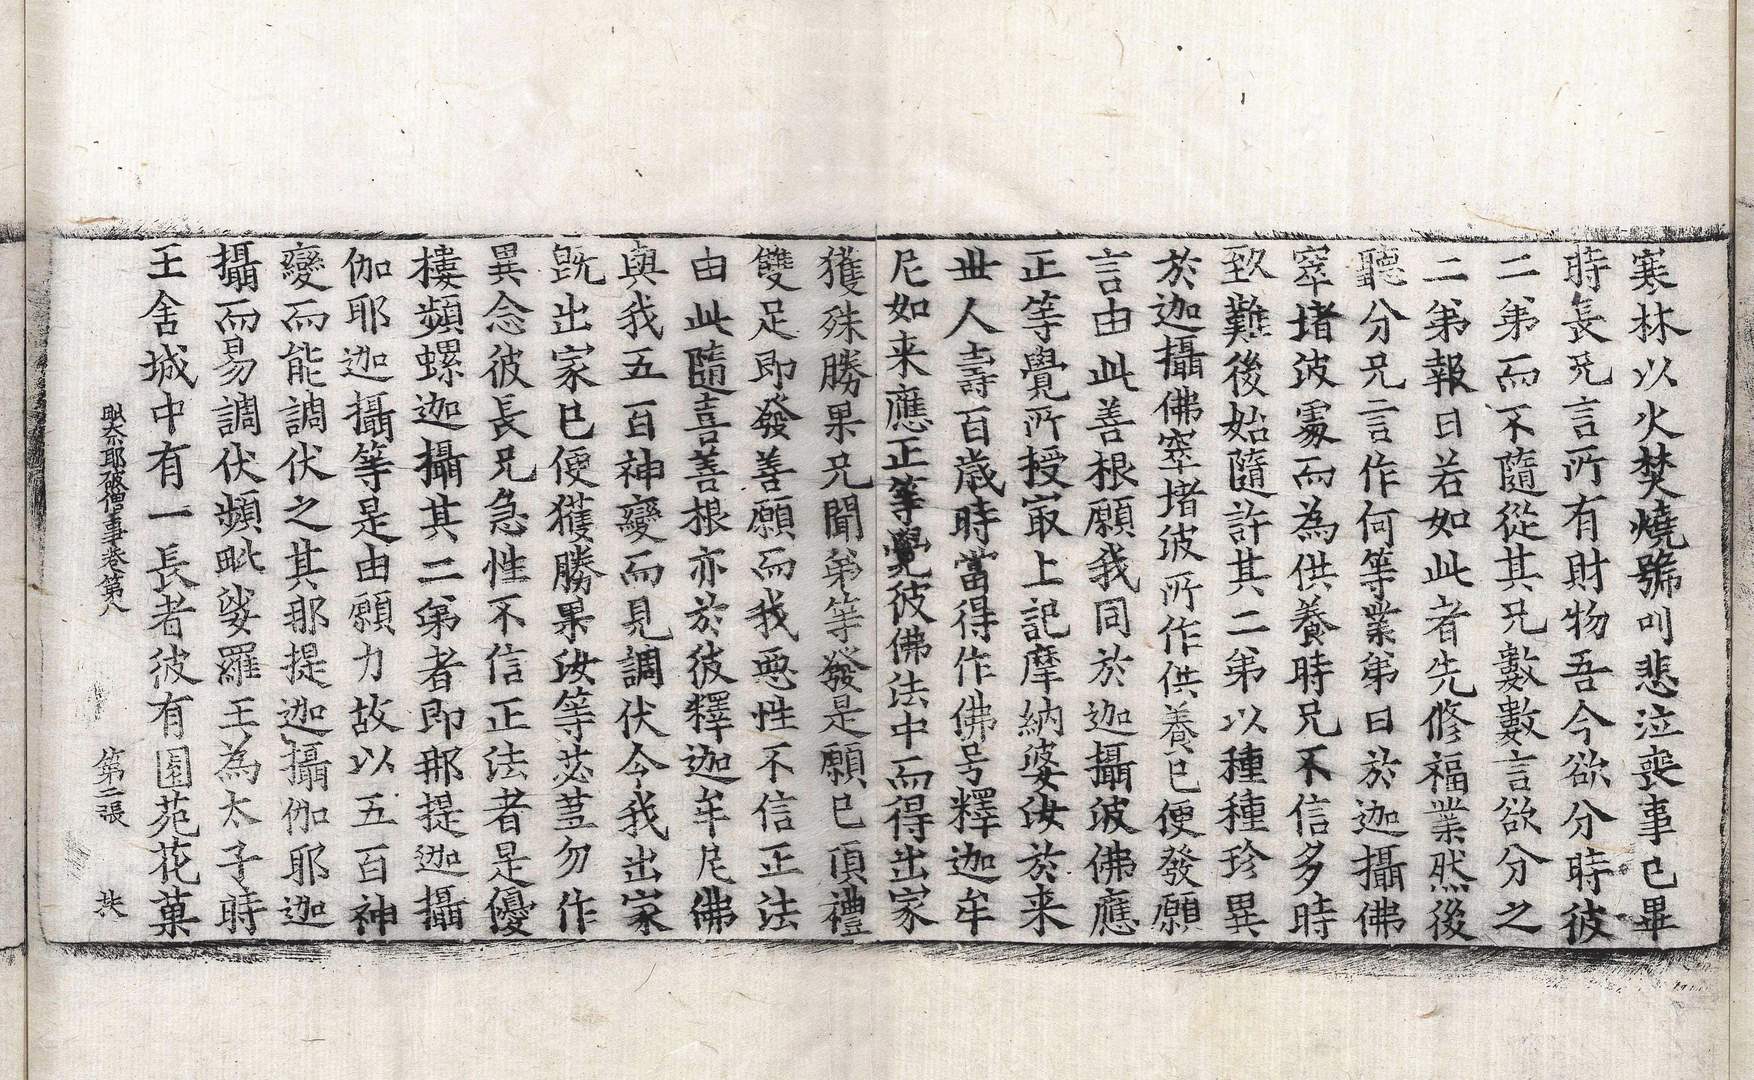 寒林以火焚燒號叫悲泣喪事已畢
時長兄言所有財物吾今欲分時彼
二弟而不隨從其兄數數言欲分之
二弟報曰若如此者先修福業然後
聽分兄言作何等業弟曰於迦攝佛
窣堵波處而為供養時兄不信多時
致難後始隨許其二弟以種種珍異
於迦攝佛窣堵波所作供養已便發願
言由此善根願我同於迦攝波佛應
正等覺所授㝡上記摩納婆汝於来
丗人壽百歲時當得作佛号釋迦牟
尼如来應正等覺彼佛法中而得出家
獲殊勝果兄聞弟等發是願已頂禮
雙足即發善願而我惡性不信正法
由此隨喜善根亦於彼釋迦牟尼佛
與我五百神變而見調伏令我出家
既出家已便獲勝果汝等苾蒭勿作
異念彼長兄急性不信正法者是優
樓頻螺迦攝其二弟者即那提迦攝
伽耶迦攝等是由願力故以五百神
變而能調伏之其那提迦攝伽耶迦
攝而易調伏頻毗娑羅王為太子時
王舍城中有一長者彼有園苑花菓
毗奈耶破僧事卷第八 第二張